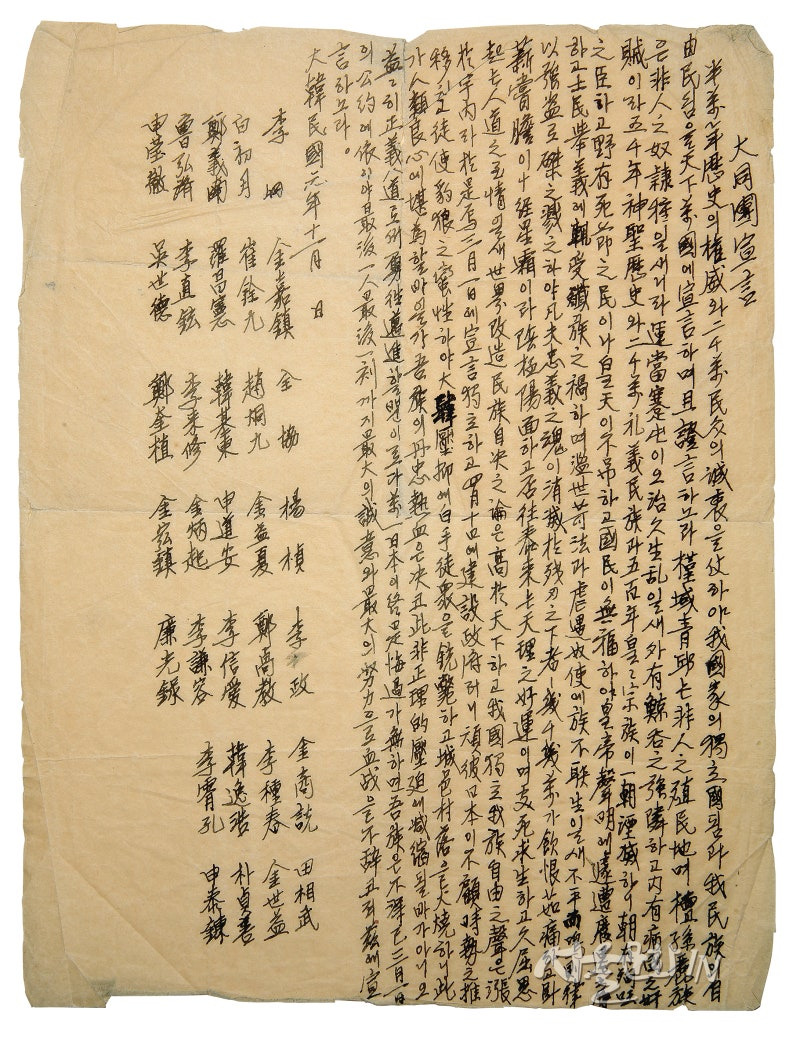 大同團宣言
半萬年歷史의權威와二千萬民衆의誠衷을仗하야我國家의獨立國됨과我民族의自
由民됨을天下萬國에宣言하며且證言하노라槿域靑邱는非人之殖民地며檀孫麗族
은非人之奴隸種일새니라運當蹇屯이오治久生乱일새外有鯨呑之强隣하고內有痛国之奸
賊이라五千年神聖歷史와二千萬礼義民族과五百年皇皇宗族이一朝湮滅하니朝有
之臣하고野有死節之民이나皇天이不吊하고國民이無福하야皇帝聲明에遽遭廢
하고士民擧義에輒受殲族之禍하며濫世苛法과虐遇奴使에族不聊生일새不平而鳴則律
以强盜로磔之戮之하야凡夫忠義之魂이消滅於残刃之下者ㅣ幾千幾萬가飮恨茹痛臥
薪嘗膽이十経星霜이라陰極陽面하고否往泰来는天理之好運이며支死求生하고久屈思
起는人道之至情일새世界改造民族自决之論은高於天下하고我國獨立我族自由之聲은漲
於宇內라於是焉三月一日에宣言獨立하고四月十日에建設政府러니頑彼日本이不顧時勢之推
移하고徒使豹狼之蛮性하야大肆壓抑에白手徒衆을銃斃하고城邑村落을火燒하니此
가人類良心에堪爲할바일가吾族의丹忠熱血은决코此非正理的壓迫에减縮될바가아니오
益々히正義人道로써勇往邁進할뿐이로다萬一日本이終是悔過가無하면吾族은不得已三月一日
의公約에依하야最後一人最後一刻까지最大의誠意와最大의努力으로血战을不辞코저玆에宣
言하노라。
大韓民國元年十一月 日
李堈 金嘉鎮 全協 楊楨 李政 金商説 田相武
白初月 崔銓九 趙炯九 金益夏 鄭卨教 李種春 金世益
鄭義南 羅昌憲 韓基東 申道安 李信愛 韓逸浩 朴貞善
魯弘濟 李直鉉 李来修 金炳起 李謙容 李霄孔 申泰鍊
申瑩澈 吳世德 鄭奎植 金宏鎮 廉光録